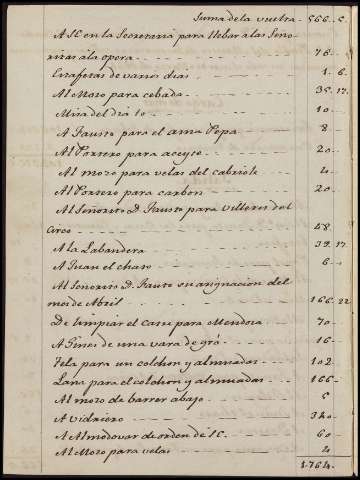 Suma de la vuelta - 566. 5.
A S.E. en la Secretaria para llebar a las Seño-
ritas à la opera - 76.
Estafetas de varios dias - 1. 6.
Al Mozo para cebada - 35. 17.
Misa del dia 10 - 10
A Fausto para el ama Pepa - 8
Al Portero para aceyte - 20
Al mozo para velas del cabriolé - 4
Al Portero para carbon - 20
Al Señorito D. Fausto para villetes del
circo - 48
A la Labandera - 39. 17.
A Juan el chato - 6
Al Señorito D. Fausto su asignacion del
mes de Abril - 166. 22
De limpiar el catre para Mendoza - 70
A Gines de una vara de gró - 16
Tela para un colchon y almuadas - 102
Lana para el colchon y almuadas - 166
Al mozo de barrer abajo - 5
A vidriero - 340
A Almodovar de orden de S.E. - 60
Al Mozo para velas - 4
1.764.